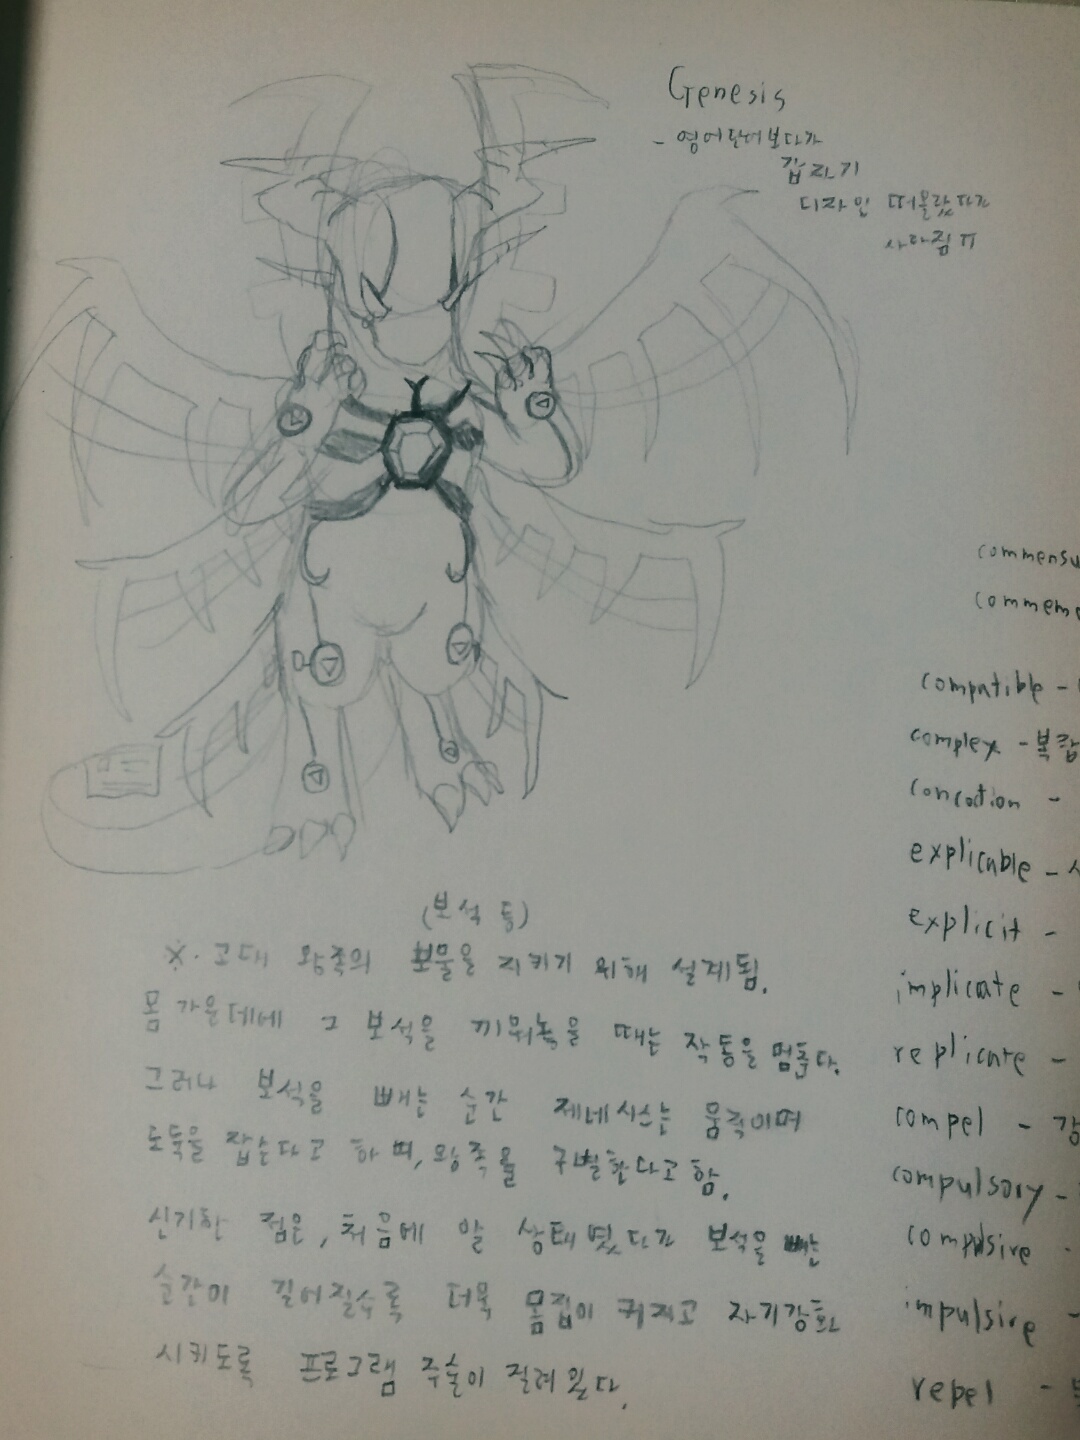 Genesis
- 영어단어보다가
갑자기
디자인 떠올랐다가
사라짐 ㅠ
commensu
commemo
compatible -
complex - 복잡
concoction -
explicable - 사
explicit -
implicate -
replicate -
compel - 강
compulsory -
compulsive -
impulsive -
repel -
(보석 등)
※. 고대 왕족의 보물을 지키기 위해 설계됨.
몸 가운데에 그 보석을 끼워놓을 때는 작동을 멈춘다.
그러나 보석을 빼는 순간 제네시스는 움직이며
도둑을 잡는다고 하며, 왕족을 구별한다고 함.
신기한 점은, 처음에 알 상태였다가 보석을 빼는
순간이 길어질수록 더욱 몸집이 커지고 자기강화
시키도록 프로그램 주술이 걸려 있다.